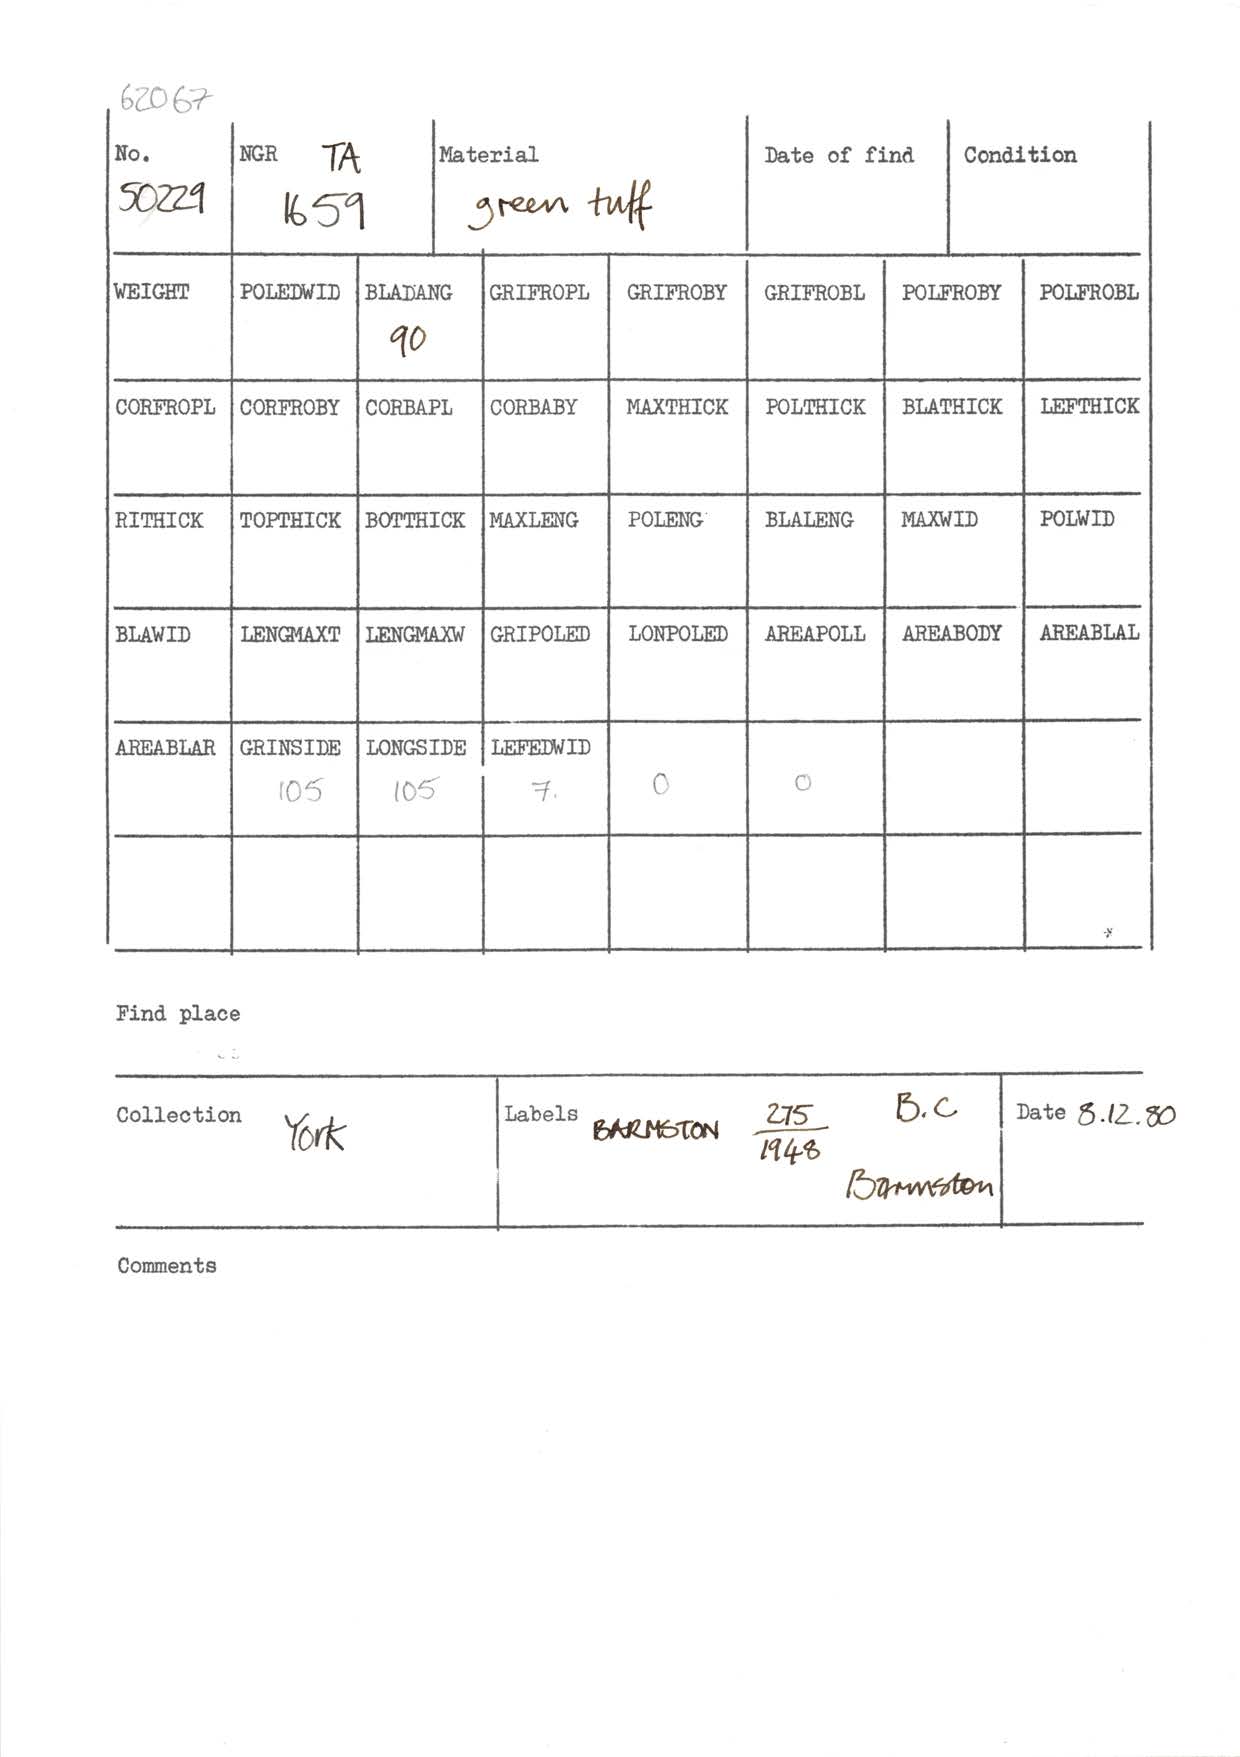 62067
No. NGR TA Material Date of find Condition
50229 1659 green tuff
WEIGHT POLEDWID BLADANG GRIFROPL GRIFROBY GRIFROBL POLFROBY POLFROBL
90
CORFROPL CORFROBY CORBAPL CORBABY MAXTHICK POLTHICK BLATHICK LEFTHICK
RITHICK TOPTHICK BOTTHICK MAXLENG POLENG BLALENG MAXWID POLWID
BLAWID LENGMAXT LENGMAXW GRIPOLED LONPOLED AREAPOLL AREABODY AREABLAL
AREABLAR GRINSIDE LONGSIDE LEFEDWID
105 105 7. 0 0
Find place
Collection York Labels BARMSTON 275/1948 B.C Date 8.12.80
Barmston
Comments